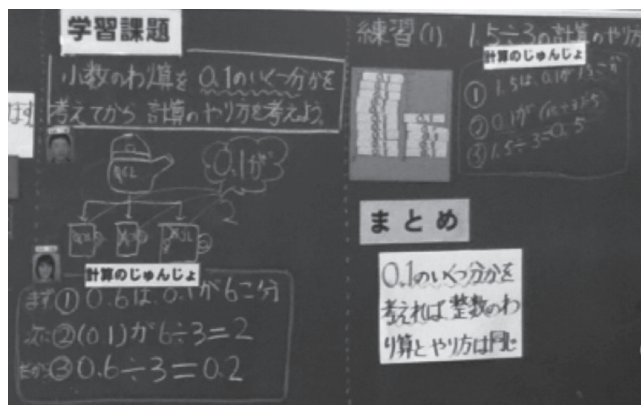 学習課題
小数のわり算を0.1のいくつ分かを
考えてから計算のやり方を考えよう。
ます
0.6L
0.1が
2
計算のじゅんじょ
まず①0.6は0.1が6こ分
次に②(0.1)が6÷3=2
だから③0.6÷3=0.2
練習(1) 1.5÷3の計算のやり方
計算のじゅんじょ
①1.5は0.1が15こ分
②0.1が(15÷3)=5
③1.5÷3=0.5
0.1
まとめ
0.1のいくつ分かを
考えれば整数のわ
り算とやり方は同じ